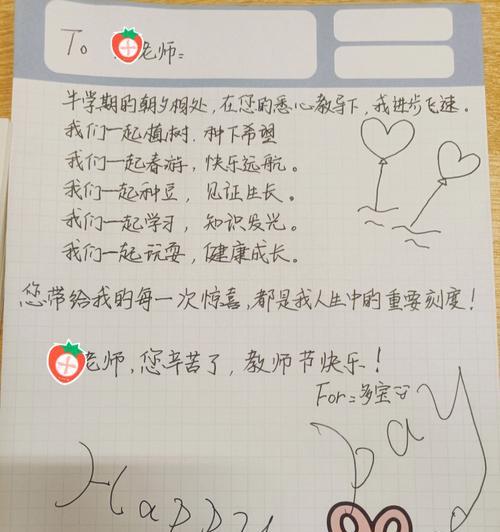 To 老师:
半学期的朝夕相处，在您的悉心教导下，我进步飞速。
我们一起植树，种下希望
我们一起春游，快乐远航。
我们一起种豆，见证生长。
我们一起学习，知识发光。
我们一起玩耍，健康成长。
您带给我的每一次惊喜，都是我人生中的重要刻度！
老师，您辛苦了，教师节快乐！
For:多宝
Happy
Day